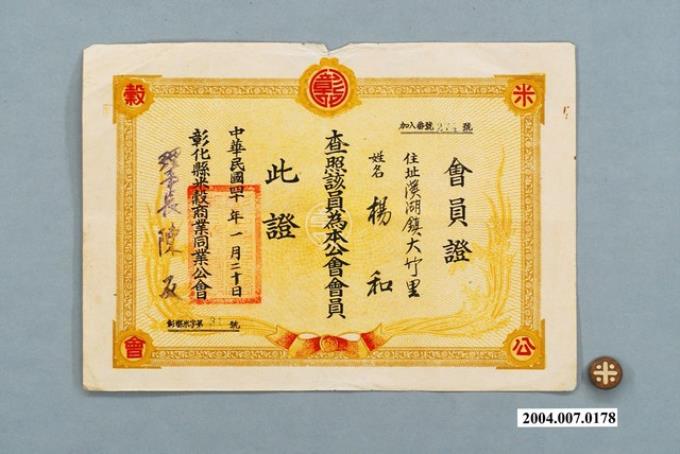 米
彰
穀
加入番號 號
會員證
住址溪湖鎮大竹里
姓名 楊和
查照該員為本公會會員
此證
中華民國四十年一月二十日
彰化縣米穀商業同業公會
理事長 陳
字第 31 號
公
會
2004.007.0178